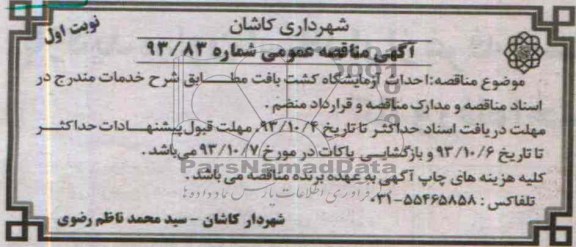 شهرداری کاشان
نوبت اول
آگهی مناقصه عمومی شماره ۹۳/۸۳
موضوع مناقصه: احداث آزمایشگاه کشت بافت مطابق شرح خدمات مندرج در
اسناد مناقصه و مدارک مناقصه و قرارداد منضم .
مهلت دریافت اسناد حداکثر تا تاریخ ۹۳/۱۰/۴، مهلت قبول پیشنهادات حداکثر
تا تاریخ ۹۳/۱۰/۶ و بازگشایی پاکات در مورخ ۹۳/۱۰/۷ می‌باشد .
کلیه هزینه های چاپ آگهی به عهده برنده مناقصه می باشد .
تلفاکس : ۵۵۴۶۵۸۵۸-۰۳۱
شهردار کاشان - سید محمد ناظم رضوی
ParsNamadData